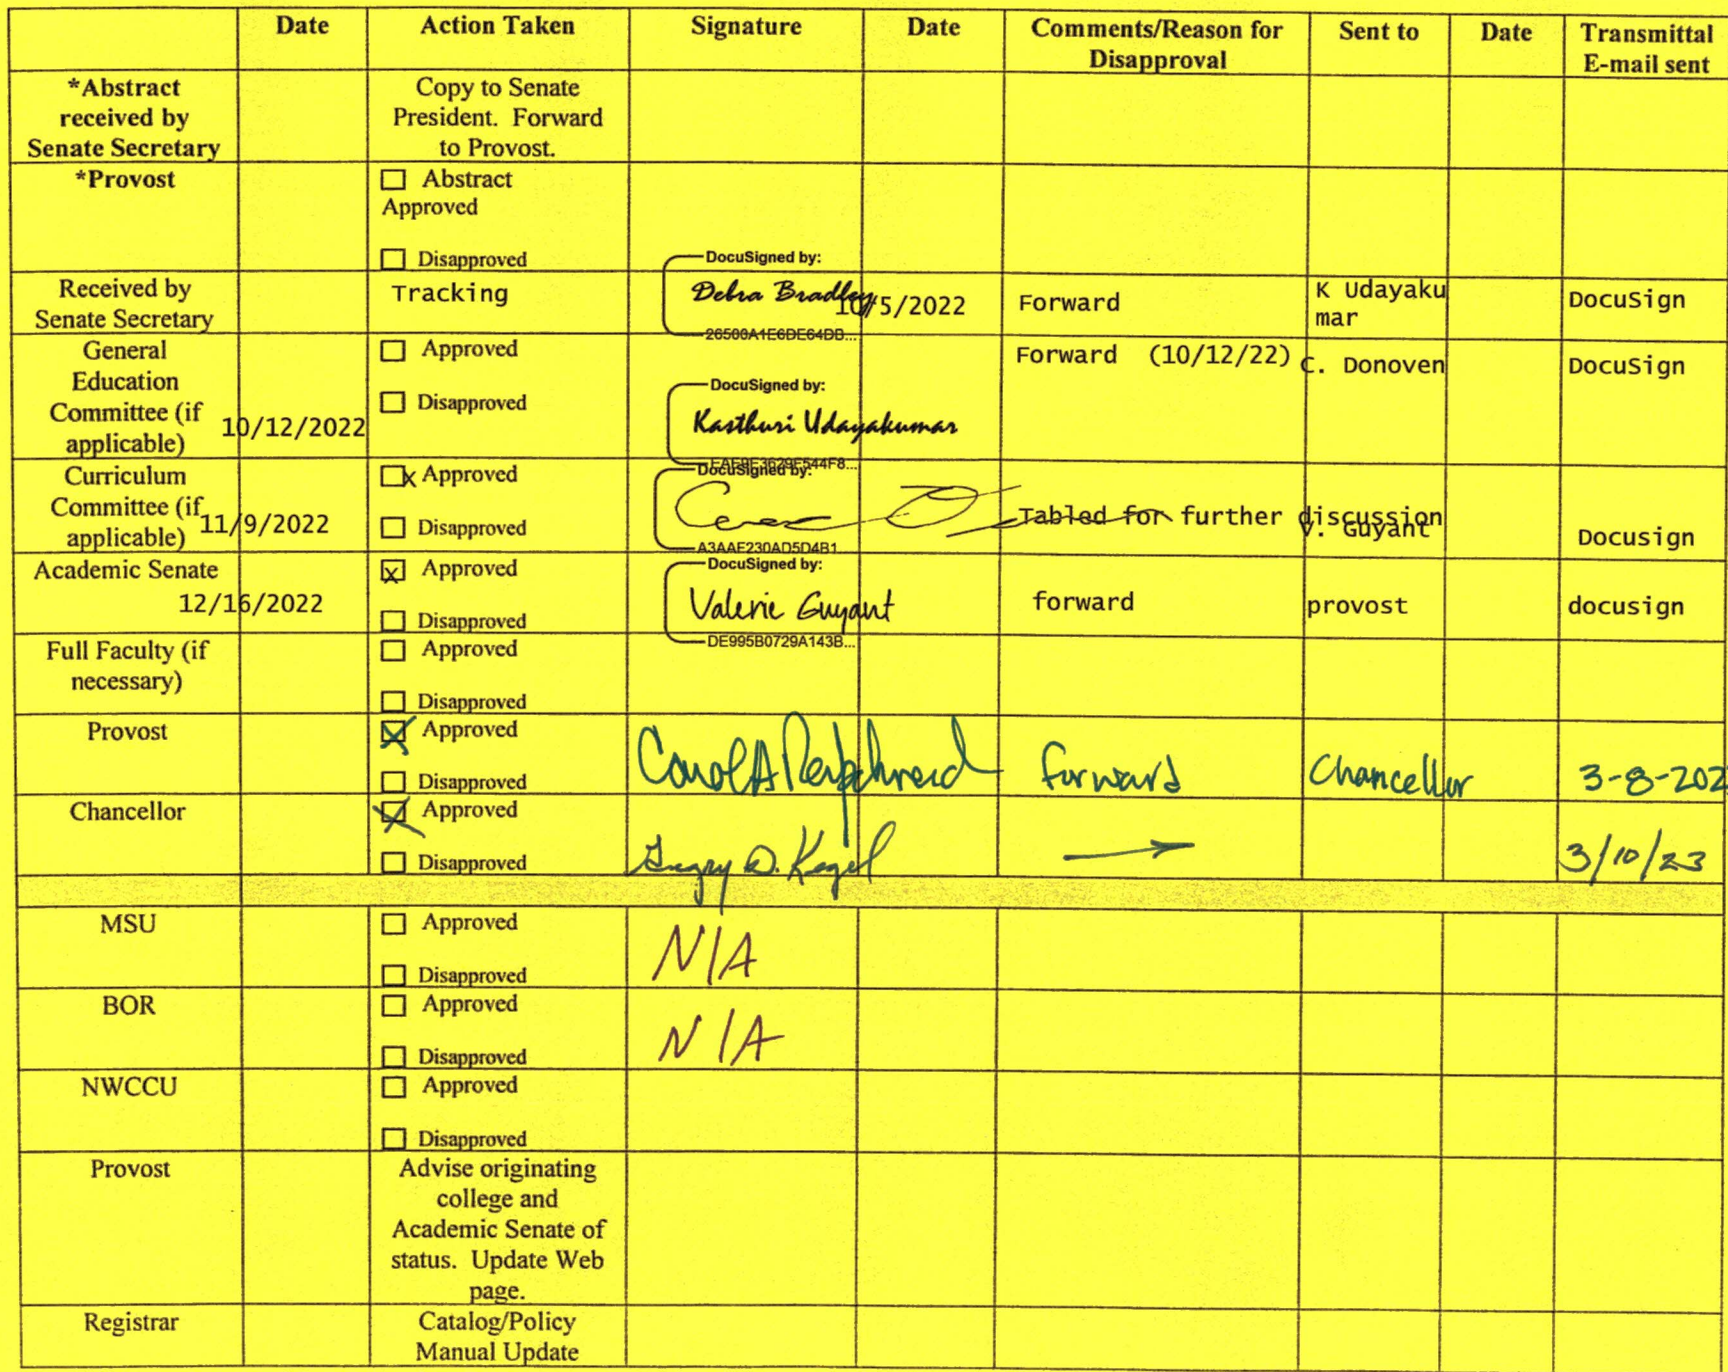 Date Action Taken Signature Date Comments/Reason for Disapproval Sent to Date Transmittal E-mail sent
*Abstract received by Senate Secretary
Copy to Senate President. Forward to Provost.
*Provost
☐ Abstract Approved
☐ Disapproved
Received by Senate Secretary
Tracking
DocuSigned by:
Debra Bradley
26500A1E6DE64DB...
10/5/2022
Forward
K Udayaku
mar
DocuSign
General Education Committee (if applicable)
10/12/2022
☐ Approved
☐ Disapproved
DocuSigned by:
Kasthuri Udayakumar
Forward (10/12/22)
C. Donoven
DocuSign
Curriculum Committee (if applicable)
11/9/2022
☐x Approved
☐ Disapproved
DocuSigned by:
A3AAF230AD5D4B1...
Tabled for further discussion
V. Guyant
Docusign
Academic Senate
12/16/2022
☒ Approved
☐ Disapproved
DocuSigned by:
Valerie Guyant
DE995B0729A143B...
forward
provost
docusign
Full Faculty (if necessary)
☐ Approved
☐ Disapproved
Provost
☒ Approved
☐ Disapproved
Carol A
forward
Chancellor
3-8-202
Chancellor
☒ Approved
☐ Disapproved
D. Kegel
→
3/10/23
MSU
☐ Approved
☐ Disapproved
N/A
BOR
☐ Approved
☐ Disapproved
N/A
NWCCU
☐ Approved
☐ Disapproved
Provost
Advise originating college and Academic Senate of status. Update Web page.
Registrar
Catalog/Policy Manual Update